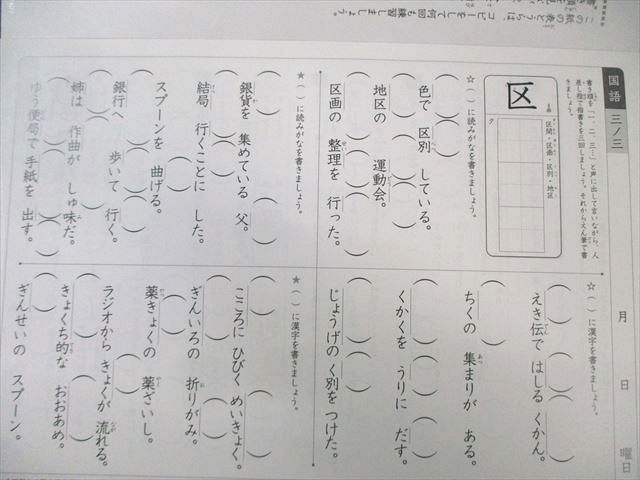 この紙の表とうらは、コピーをして何回も練習しましょう。
国語 三ノ三
書き順を「一、二、三…」と声に出して言いながら、人
差し指で指書きを三回しましょう。それからえん筆で書
きましょう。
月 日 曜日
区
区間・区画・区別・地区
ク
☆（ ）に読みがなを書きましょう。
色で 区別 している。
地区の 運動会。
区画の 整理を 行った。
☆（ ）に漢字を書きましょう。
えき伝で はしる くかん。
ちくの 集まりが ある。
くかくを うりに だす。
じょうげの く別を つけた。
★（ ）に読みがなを書きましょう。
銀貨を 集めている 父。
結局 行くことに した。
スプーンを 曲げる。
銀行へ 歩いて 行く。
姉は 作曲が しゅ味だ。
ゆう便局で 手紙を 出す。
★（ ）に漢字を書きましょう。
こころに ひびく めいきょく。
ぎんいろの 折りがみ。
薬きょくの 薬ざいし。
ラジオから きょくが 流れる。
きょくち的な おおあめ。
ぎんせいの スプーン。